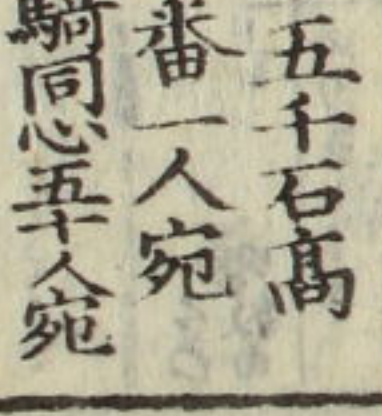 五千石髙
番一人宛
騎同心五十人宛